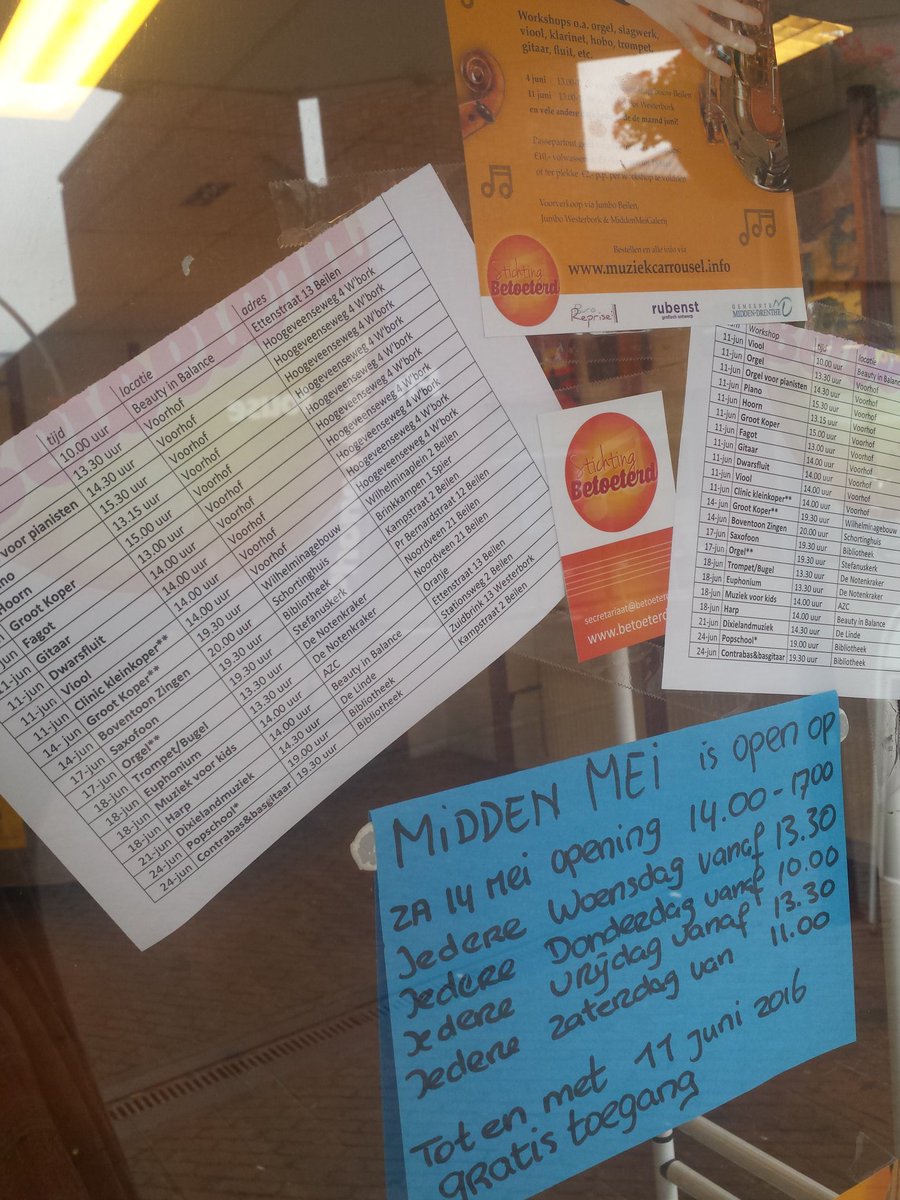 Workshops o.a. orgel, slagwerk,
viool, klarinet, hobo, trompet,
gitaar, fluit, etc.
4 juni 13.00
11 juni 13.00
Beilen
Westerbork
en vele andere
de maand juni!
Passepartout
of ter plekke
te voldoen
Voorverkoop via Jumbo Beilen,
Jumbo Westerbork & MiddenMeiGalerij
Bestellen en alle info via
www.muziekcarrousel.info
Stichting
Betoeterd
Reprise!
rubenst
GEMEENTE
MIDDEN-DRENTHE
tijd locatie adres
10.00 uur Beauty in Balance Ettenstraat 13 Beilen
13.30 uur Voorhof Hoogeveenseweg 4 W'bork
voor pianisten 14.30 uur Voorhof Hoogeveenseweg 4 W'bork
15.30 uur Voorhof Hoogeveenseweg 4 W'bork
Hoorn 13.15 uur Voorhof Hoogeveenseweg 4 W'bork
Groot Koper 15.00 uur Voorhof Hoogeveenseweg 4 W'bork
Fagot 13.00 uur Voorhof Hoogeveenseweg 4 W'bork
11-jun Gitaar 14.00 uur Voorhof Hoogeveenseweg 4 W'bork
11-jun Dwarsfluit 14.00 uur Voorhof Hoogeveenseweg 4 W'bork
11-jun Viool 14.00 uur Voorhof Hoogeveenseweg 4 W'bork
11-jun Clinic kleinkoper** 14.00 uur Wilhelminagebouw Wilhelminaplein 2 Beilen
14- jun Groot Koper** 19.30 uur Schortinghuis Brinkkampen 1 Spier
14-jun Boventoon Zingen 20.00 uur Bibliotheek Kampstraat 2 Beilen
17-jun Saxofoon 19.30 uur Stefanuskerk Pr Bernardstraat 12 Beilen
17-jun Orgel** 13.30 uur De Notenkraker Noordveen 21 Beilen
18-jun Trompet/Bugel 13.30 uur De Notenkraker Noordveen 21 Beilen
18-jun Euphonium 14.00 uur AZC Oranje
18-jun Muziek voor kids 14.00 uur Beauty in Balance Ettenstraat 13 Beilen
18-jun Harp 14.30 uur De Linde Stationsweg 2 Beilen
21-jun Dixielandmuziek 19.00 uur Bibliotheek Zuidbrink 13 Westerbork
24-jun Popschool* 19.30 uur Bibliotheek Kampstraat 2 Beilen
24-jun Contrabas&basgitaar
Stichting
Betoeterd
secretariaat@betoeterd
www.betoeterd
Workshop tijd locatie
11-jun Viool 10.00 uur Beauty in Balance
11-jun Orgel 13.30 uur Voorhof
11-jun Orgel voor pianisten 14.30 uur Voorhof
11-jun Piano 15.30 uur Voorhof
11-jun Hoorn 13.15 uur Voorhof
11-jun Groot Koper 15.00 uur Voorhof
11-jun Fagot 13.00 uur Voorhof
11-jun Gitaar 14.00 uur Voorhof
11-jun Dwarsfluit 14.00 uur Voorhof
11-jun Viool 14.00 uur Voorhof
11-jun Clinic kleinkoper** 14.00 uur Wilhelminagebouw
14-jun Groot Koper** 19.30 uur Schortinghuis
14-jun Boventoon Zingen 20.00 uur Bibliotheek
17-jun Saxofoon 19.30 uur Stefanuskerk
17-jun Orgel** 13.30 uur De Notenkraker
18-jun Trompet/Bugel 13.30 uur
18-jun Euphonium 14.00 uur AZC
18-jun Muziek voor kids 14.00 uur Beauty in Balance
18-jun Harp 14.30 uur De Linde
21-jun Dixielandmuziek 19.00 uur Bibliotheek
24-jun Popschool* 19.30 uur Bibliotheek
24-jun Contrabas&basgitaar
MIDDEN MEI is open op
ZA 14 MEI opening 14.00 - 1700
Jedere Woensdag vanaf 13.30
Jedere Donderdag vanaf 10.00
Jedere vrijdag vanaf 13.30
Jedere zaterdag van 11.00
Tot en met 11 juni 2016
gratis toegang